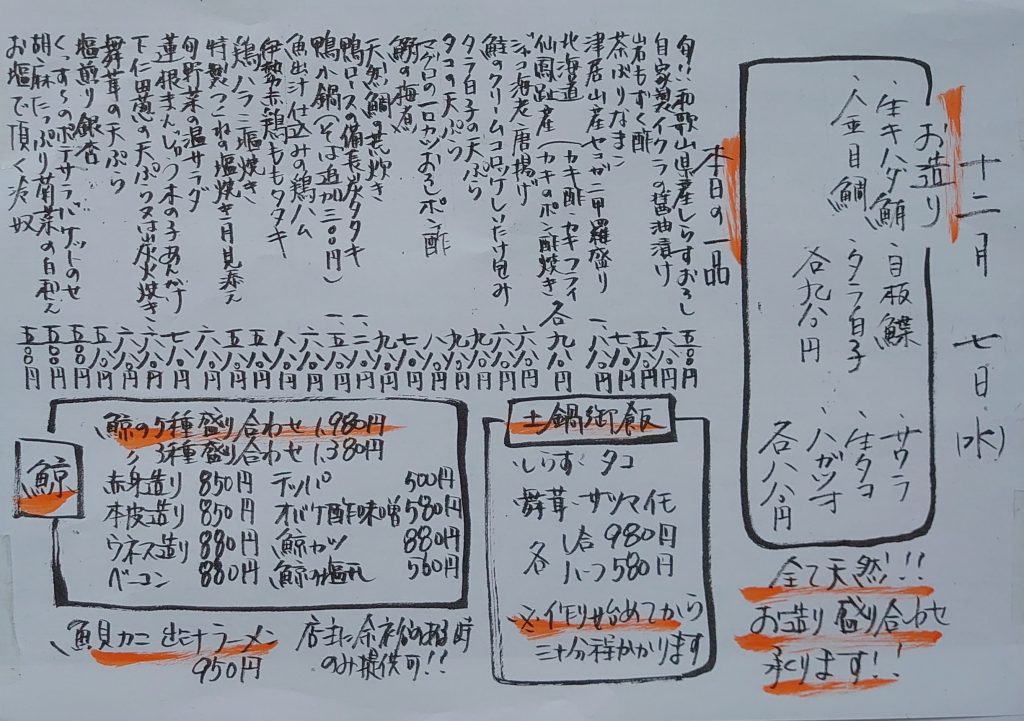 十二月 七日(水)
お造り
・生キハダ鮪 ・白板鰈 サワラ
・金目鯛 ・タラ白子 生タコ
各九八〇円 ハガツオ
各八八〇円
全て天然!!
お造り盛り合わせ
承ります!!
本日の一品
旬!!和歌山県産しらすおろし 五八〇円
自家製イクラの醤油漬け 六八〇円
岩もずく酢 五八〇円
茶ぶりなまこ 七八〇円
津居山産セコガニ甲羅盛り 一、八八〇円
北海道
仙鳳趾産(カキ酢・カキフライ
カキのポン酢焼き 各九八〇円
ジャコ海老唐揚げ 六八〇円
鮭のクリームコロッケしいたけ包み 六八〇円
タラ白子の天ぷら 九八〇円
タコの天ぷら 九八〇円
マグロの一口カツおろしポン酢 八八〇円
鰯の梅煮 七八〇円
天然鯛の荒炊き 九八〇円
鴨ロースの備長炭タタキ
鴨か鍋(そば追加三〇〇円)
魚出汁仕込みの鶏ハム 六八〇円
伊勢赤鶏ももタタキ 八八〇円
鶏ハラミ塩焼き 五八〇円
特製つくねの塩焼き月見添え 五八〇円
旬野菜の温サラダ 六八〇円
蓮根まんじゅう木の子あんかけ 七八〇円
下仁田葱の天ぷら又は炭火焼き 六八〇円
舞茸の天ぷら 六八〇円
塩煎り銀杏 五八〇円
くっすんのポテサラバケットのせ 五八〇円
胡麻たっぷり菊菜の白和え
お塩で頂く冷奴
鯨
鯨の5種盛り合わせ 1,980円
〃 3種盛り合わせ 1,380円
赤身造り 850円 テッパ 500円
本皮造り 850円 オバケ酢味噌 580円
ウネス造り 880円 鯨カツ 880円
ベーコン 880円 鯨の塩 560円
魚貝カニ出汁ラーメン
950円
店主に余裕のある時
のみ提供可!!
土鍋御飯
・しらす・タコ
舞茸・サツマイモ
各 1合 980円
ハーフ 580円
※作り始めてから
三十分程かかります